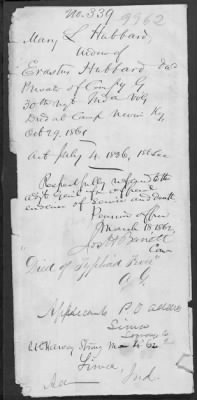 No. 339
9962
Mary L Hubbard,
widow of
Erastus Hubbard Dec
Private of Comp'y G
30th Regt Ind Vols
Died at Camp Nevin Ky,
Oct 29, 1861
Act July 4, 1836, 1st Sec
Respectfully referred to the
Adjt Genl for official
evidence of service and death
Pension Office
March 18, 1862
Jos H Barrett
Com
"Died of Typhoid Fever"
A.G.
Applicants P.O. address
Lima
Lima,
Ind.